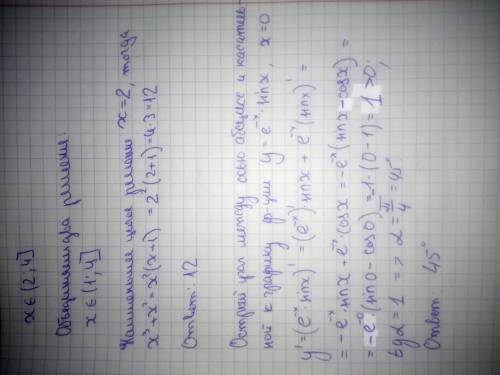 x ∈ (2; 4]
Объединяем два решения:
x ∈ (1; 4]
Наименьшее целое решение x = 2, тогда
x³ + x² = x²(x+1) = 2²(2+1) = 4·3 = 12
Ответ: 12
Острый угол между осью абсцисс и касатель-
ной к графику ф-ции y = e⁻ˣ · sinx, x = 0
y' = (e⁻ˣ · sinx)' = (e⁻ˣ)' · sinx + e⁻ˣ (sinx)' =
= -e⁻ˣ · sinx + e⁻ˣ · cosx = -e⁻ˣ (sinx - cosx) =
= -e⁻⁰ (sin0 - cos0) = -1 · (0 - 1) = 1 > 0;
tgα = 1 => α = π/4 = 45°
Ответ 45°